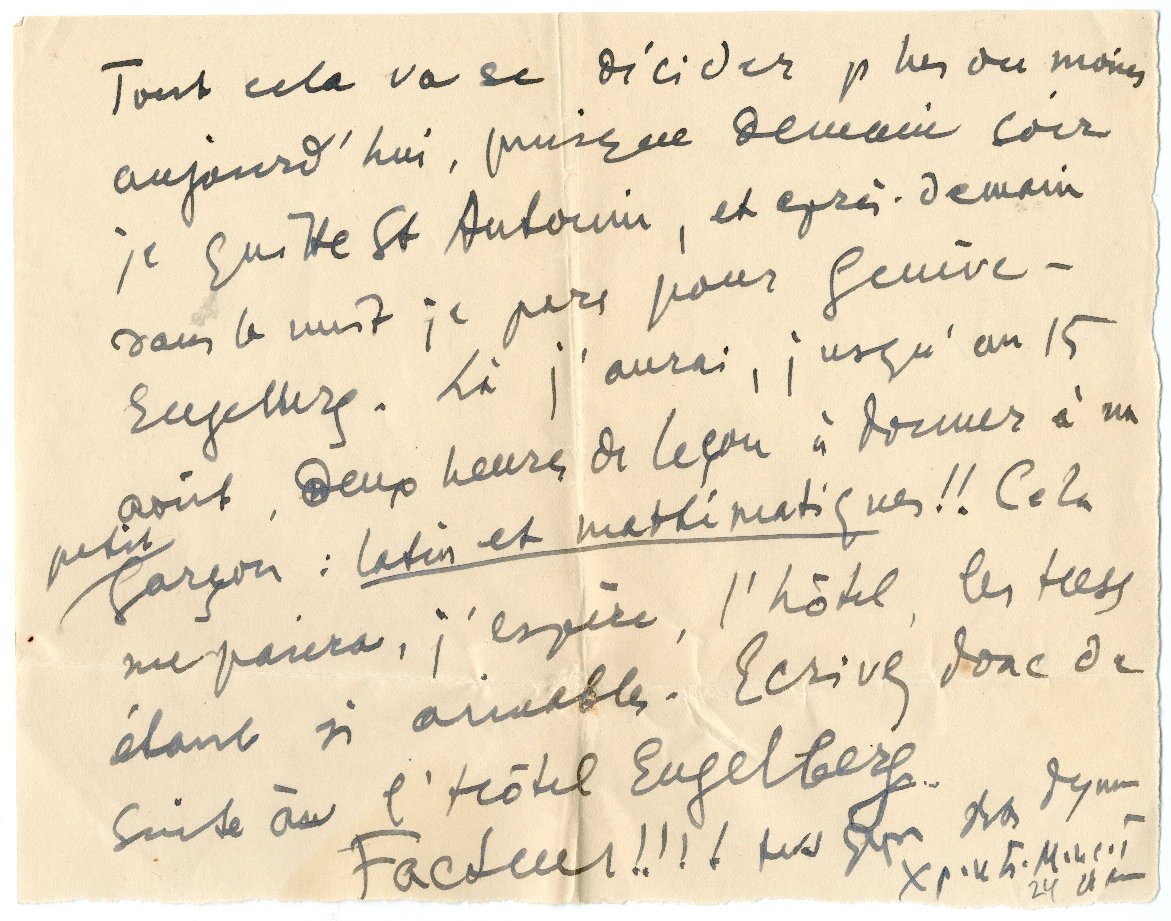 Tout cela va se décider plus ou moins
aujourd'hui, puisque demain soir
je quitte St Antonin, et après-demain
dans la nuit je pars pour Genève -
Engelberg. Là j'aurai, jusqu'au 15
août, deux heures de leçon à donner à un
petit
garçon : latin et mathématiques!! Cela
me paiera, j'espère, l'hôtel, les
étant si aimables. Ecrivez donc de
suite à l'Hôtel Engelberg.
Facteur!!!!
24